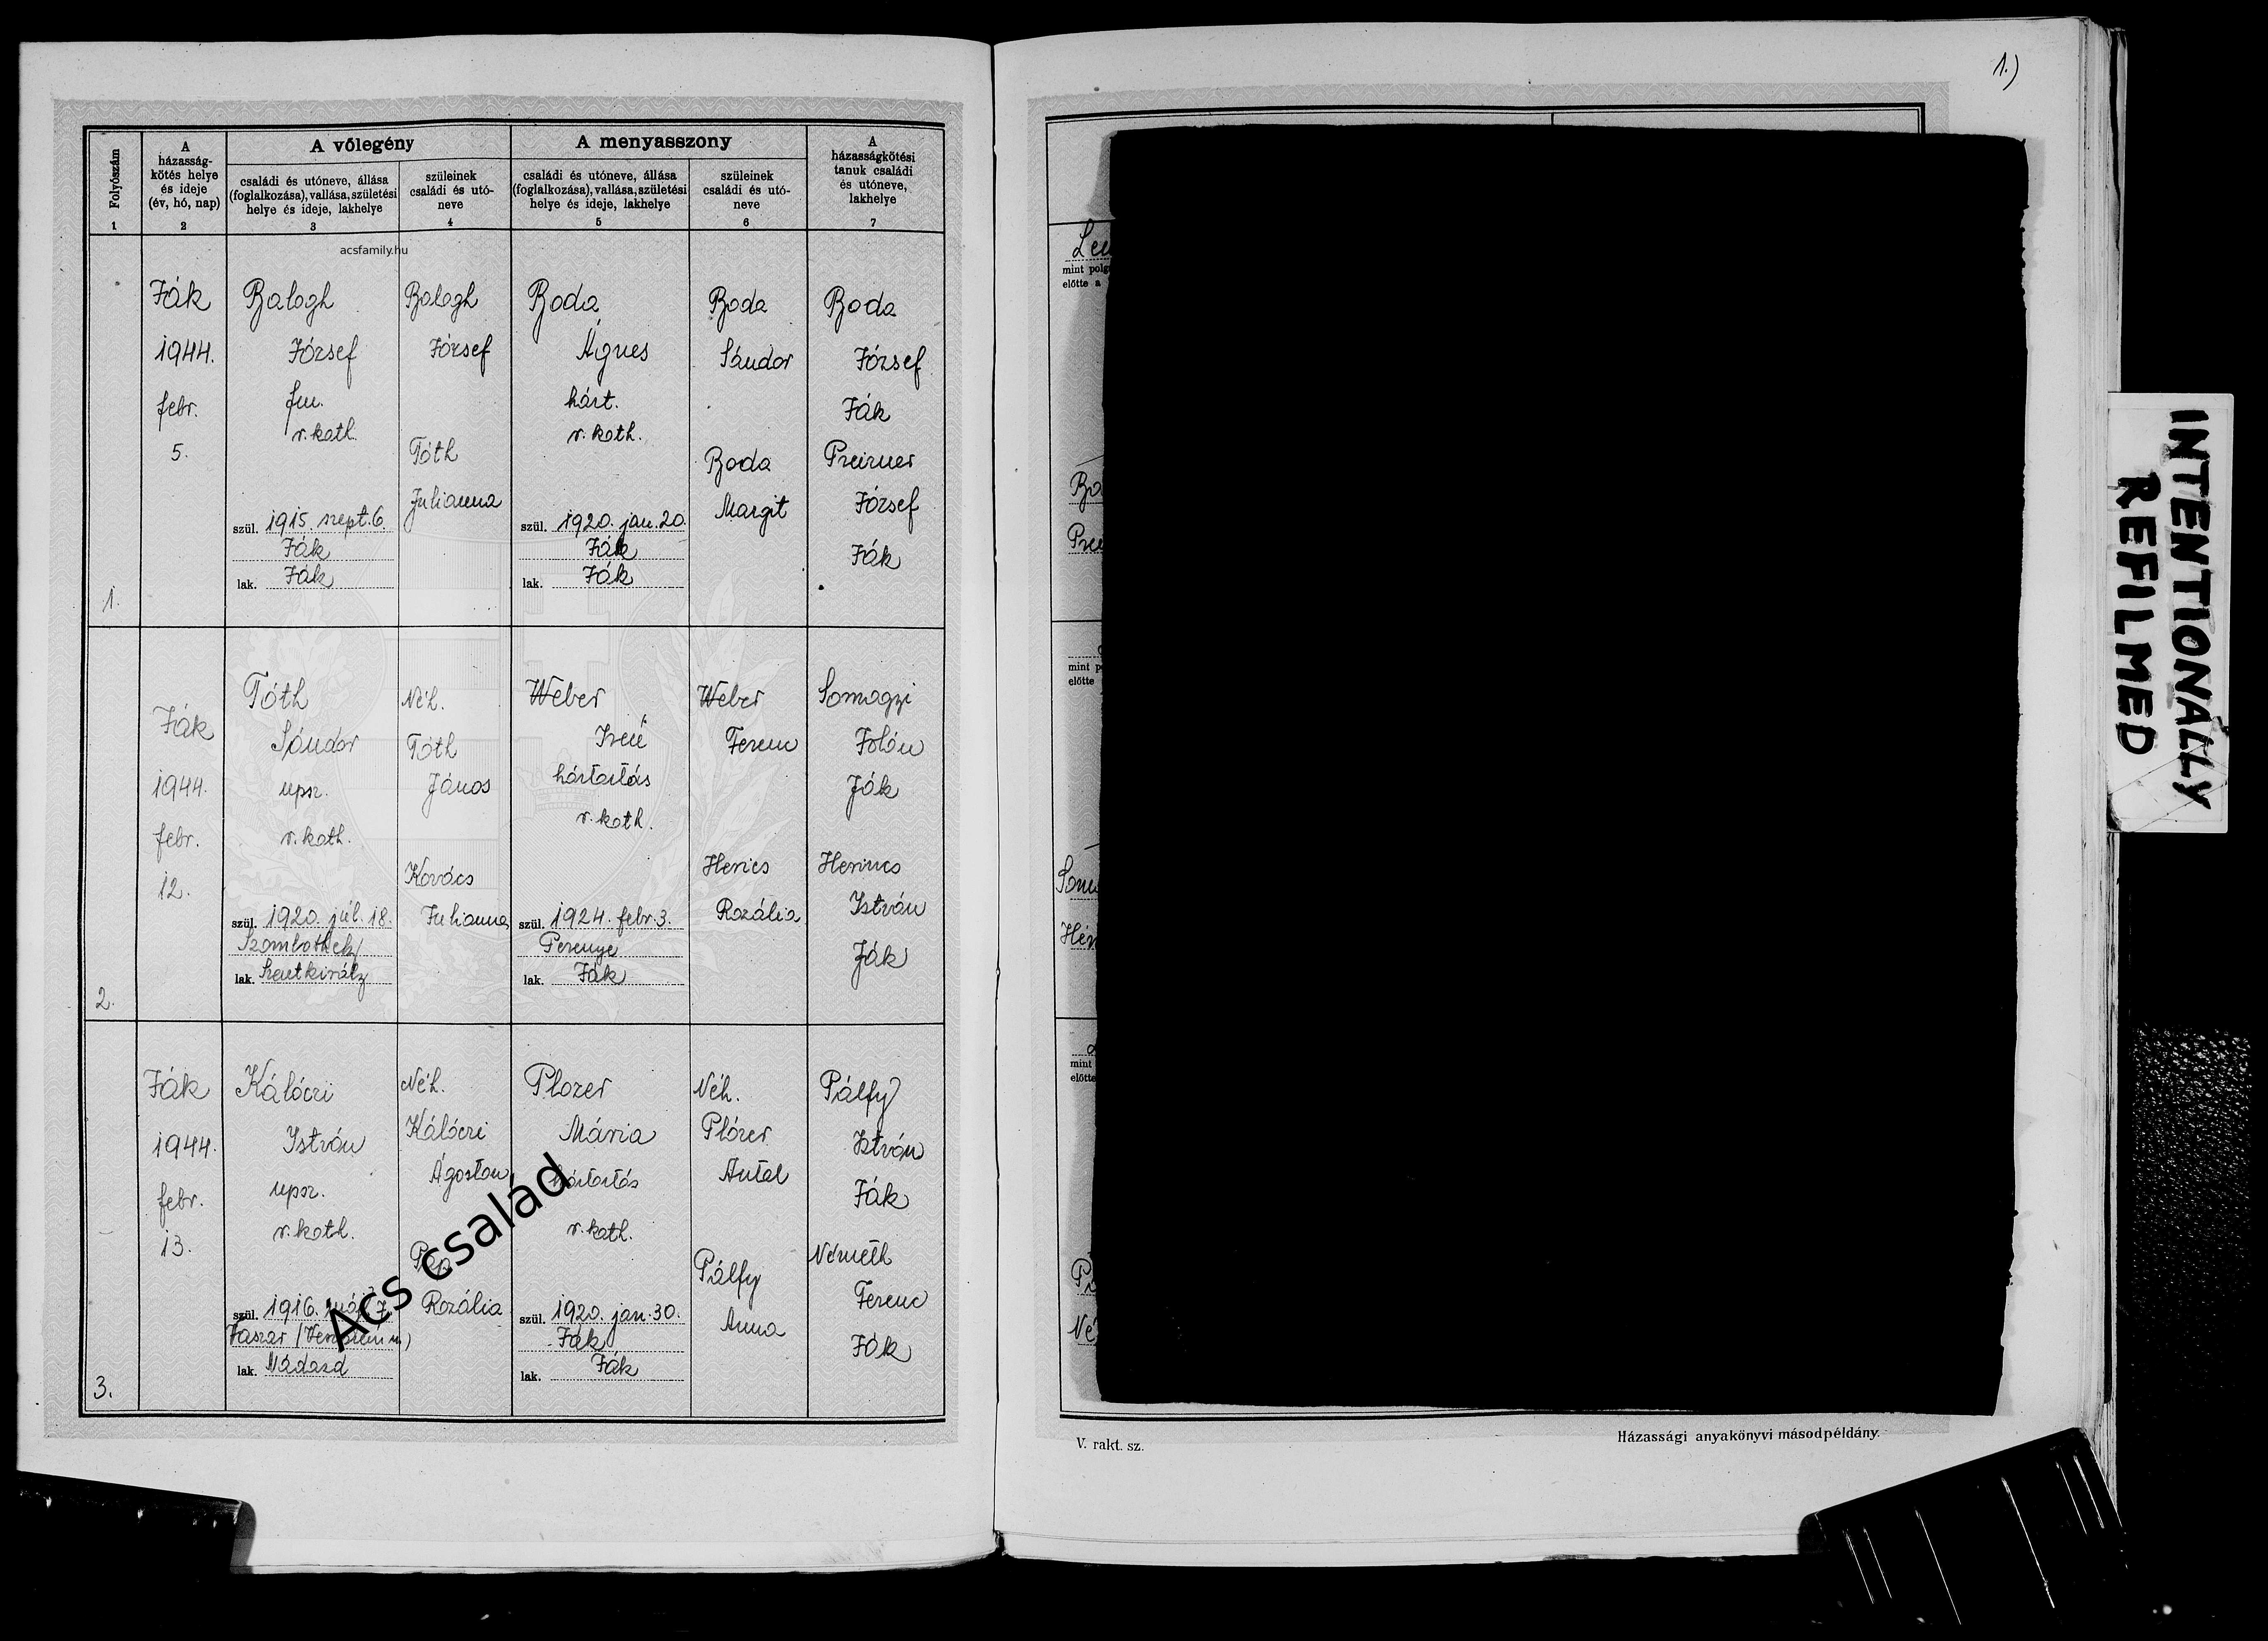 1.)
Folyószám
A
házasság-
kötés helye
és ideje
(év, hó, nap)
A vőlegény
családi és utóneve, állása
(foglalkozása), vallása, születési
helye és ideje, lakhelye
szüleinek
családi és utó-
neve
A menyasszony
családi és utóneve, állása
(foglalkozása), vallása, születési
helye és ideje, lakhelye
szüleinek
családi és utó-
neve
A
házasságkötési
tanuk családi
és utóneve,
lakhelye
1 2 3 4 5 6 7
acsfamily.hu
1.
Ják
1944.
febr.
5.
Balogh
József
fm.
r. kath.
szül. 1915. szept. 6.
Ják
lak. Ják
Balogh
József
Tóth
Julianna
Boda
Ágnes
házt.
r. kath.
szül. 1920. jan. 20.
Ják
lak. Ják
Boda
Sándor
Boda
Margit
Boda
József
Ják
József
Ják
2.
Ják
1944.
febr.
12.
Tóth
Sándor
npsz.
r. kath.
szül. 1920. júl. 18.
Szombathely
lak. Szentkirály
Néh.
Tóth
János
Kovács
Julianna
Weber
Irén
háztartás
r. kath.
szül. 1924. febr. 3.
Perenye
lak. Ják
Weber
Ferenc
Herics
Rozália
Somogyi
Ják
István
Ják
3.
Ják
1944.
febr.
13.
Kálóczi
István
npsz.
r. kath.
szül. 1916. máj. 7.
Vaszar (Veszprém m)
lak. Nádasd
Néh.
Kálóczi
Ágoston
Pap
Rozália
Plozer
Mária
háztartás
r. kath.
szül. 1920. jan. 30.
Ják
lak. Ják
Néh.
Plózer
Antal
Pálfy
Anna
Pálfy
István
Ják
Németh
Ferenc
Ják
Acs család
mint polg
előtte a
mint p
előtte
mint
előtte
V. rakt. sz.
Házassági anyakönyvi másodpéldány.
INTENTIONALLY
REFILMED